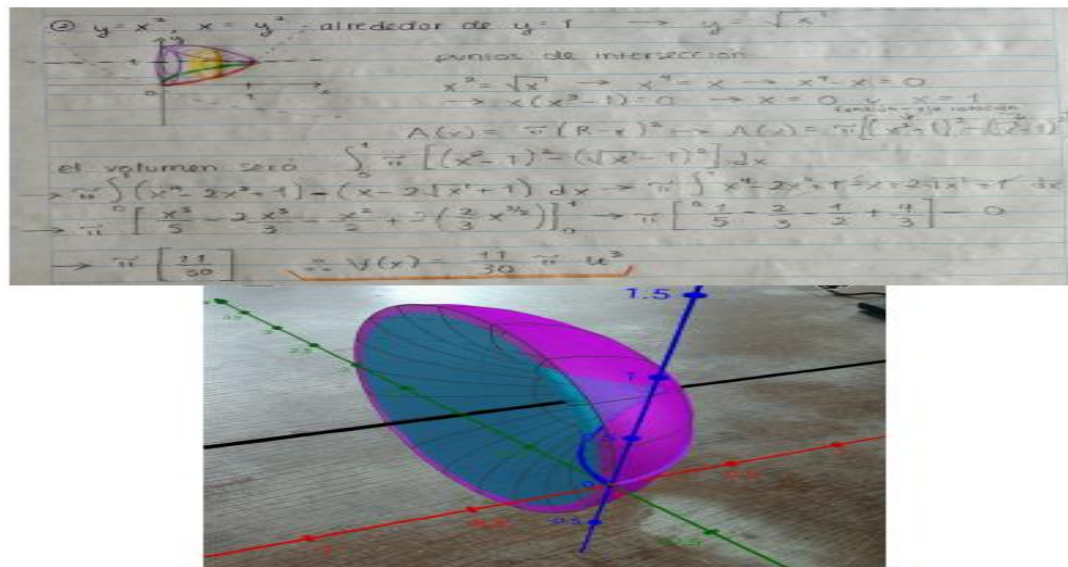 ② y = x² x = y² - alrededor de y = 1 → y = √x
puntos de intersección
x² = √x → x⁴ = x → x⁴ - x = 0
→ x(x³ - 1) = 0 → x = 0 x = 1
A(x) = π(R - r)² → A(x) = π[(x² - 1)² - (√x - 1)²]
el volumen será ∫₀¹ π[(x² - 1)² - (√x - 1)²] dx
→ π∫₀¹ (x⁴ - 2x² + 1) - (x - 2√x + 1) dx → π∫₀¹ x⁴ - 2x² + 1 - x + 2√x - 1 dx
→ π[x⁵/5 - 2x³/3 - x²/2 + 2(2/3 x^(3/2))]₀¹ → π[1/5 - 2/3 - 1/2 + 4/3] - 0
→ π[11/30] ∴ V(x) = 11/30 π u³
1.5
1
0
-0.5